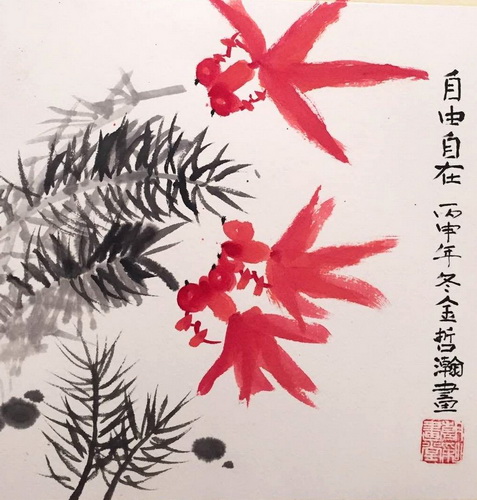 自由自在 丙申年冬金哲瀚畫